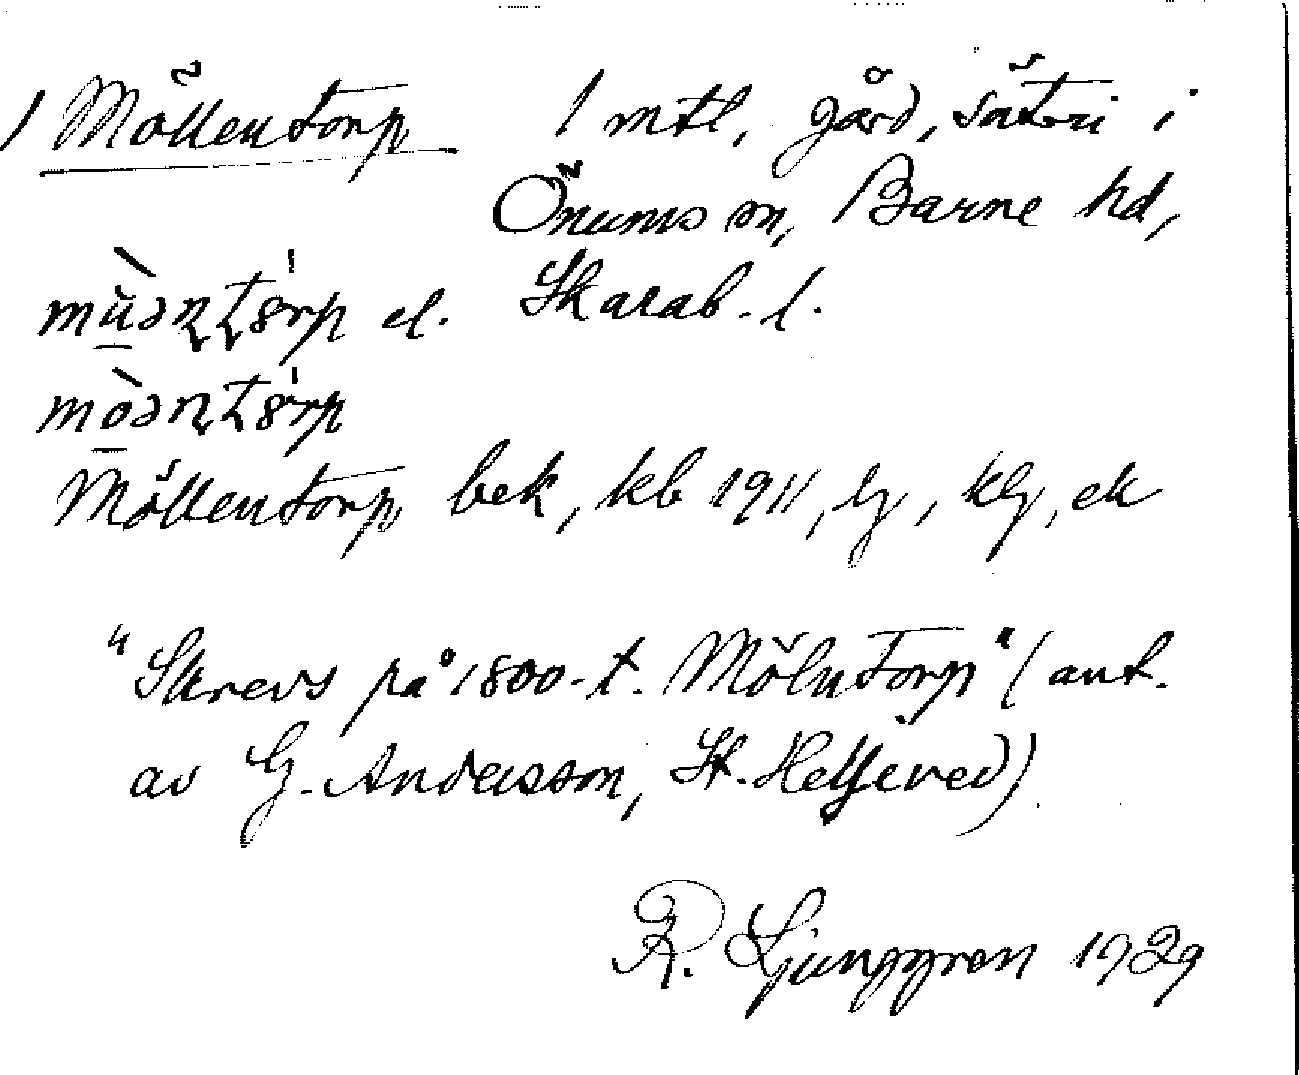 1 Möllentorp 1 mtl, gård, säteri i
Önums sn, Barne hd,
Skarab. l.
mùəɳʈórp el.
mòəɳʈórp
Möllentorp bek, kb 1911, lg, klg, ek
"Skrevs på 1800-t. Mölntorp" (ant.
av G. Andersson, St. Heljeved)
R. Ljunggren 1929